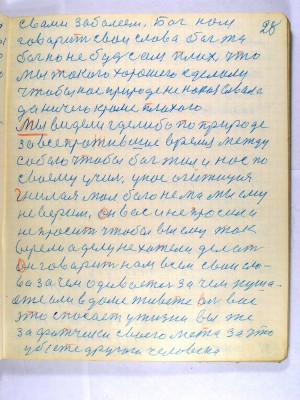 28
свами заболеем, Бог нам
говорит свои слова Бог та
Бог но не будь сам плох, что
мы такого хорошего сделали
чтобы нас природе не наказывала
да ничего кроме плохого.
Мы видели где либо по природе
за все противившие время между
собою чтобы Бог жил и нас по
своему учил, у нас очетиция
гнилая мол бога нема мы ему
не верим, он вас и не просил и
не просит чтобы вы ему так
верели а делу не хатели делать
Он говарит нам всем свои сло-
ва зачем одеваетес зачем куша-
ете али в доме живете али вас
это спасает у жизни вы же
за фатчики своего места за это
убьете друга человека